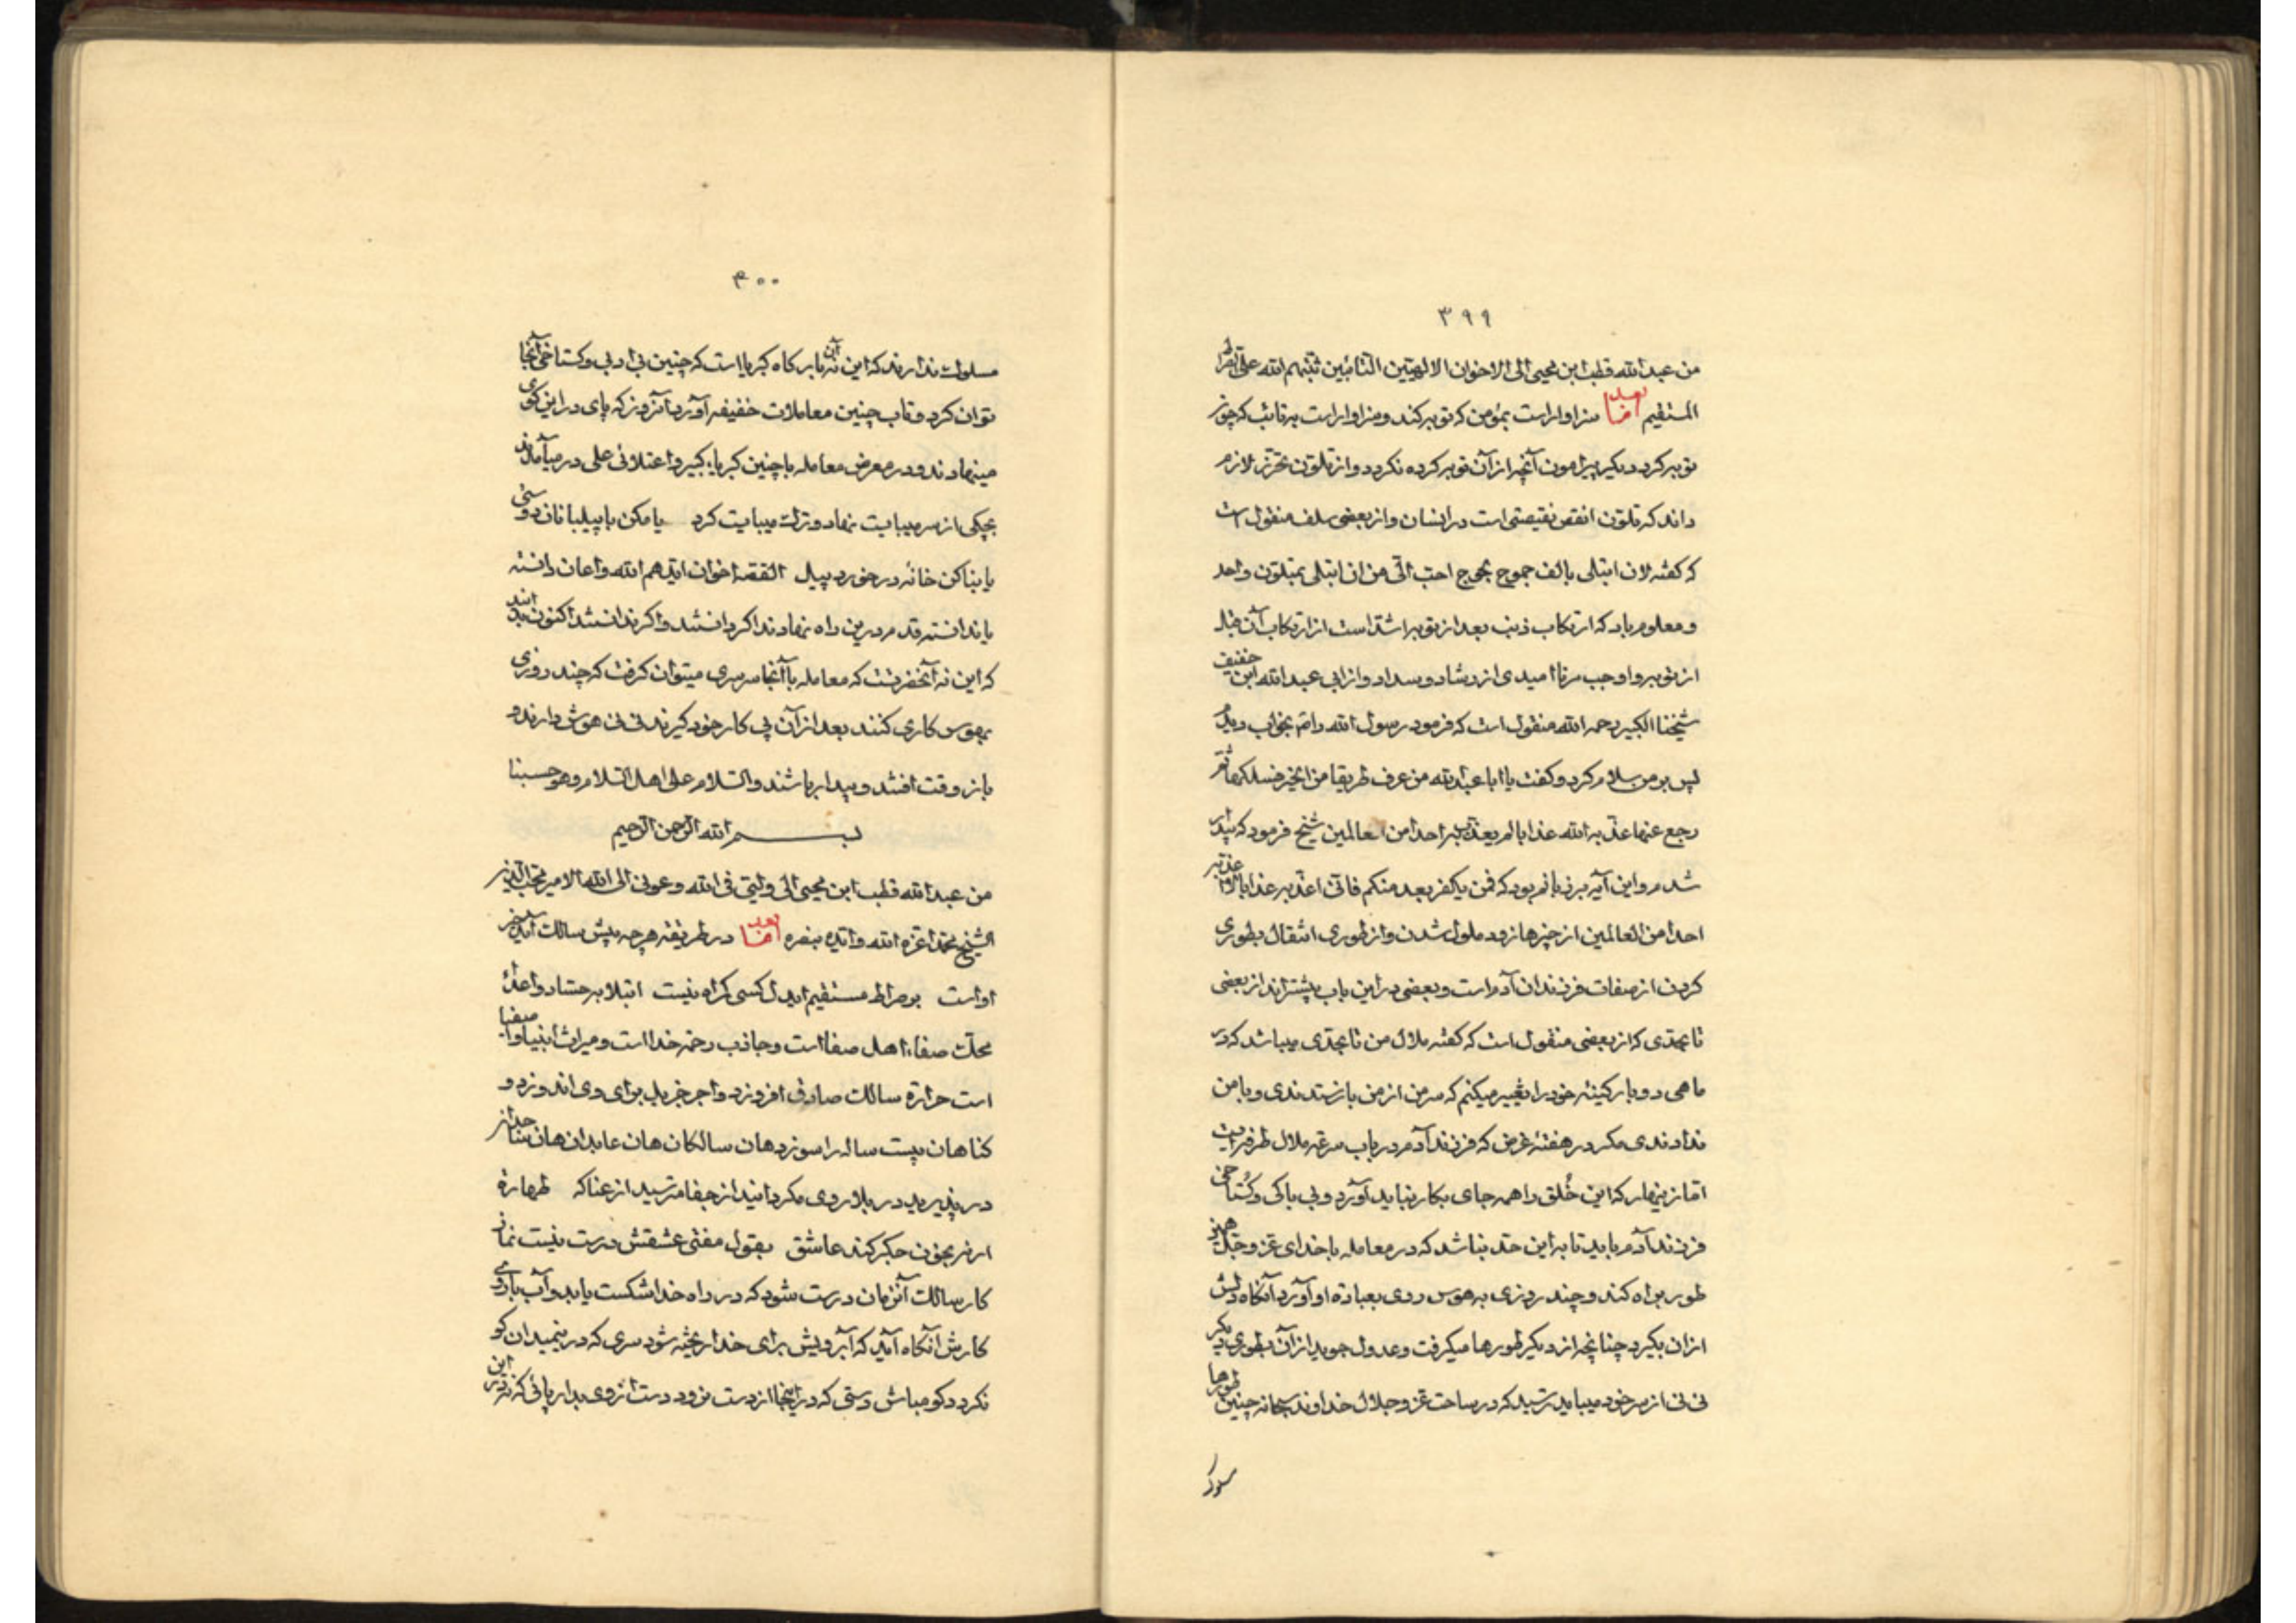 ۳۹۹
من عبدالله قطب ابن محیی الی الاخوان الالهیین التائبین ثبتهم الله علی الصراط
المستقیم اما بعد سزاوار است بمؤمن که توبه کند و سزاوار است به تائب که چون
توبه کرد دیکر پیرامون آنچه از آن توبه کرده نکردد و از تلون تحرز لازم
داند که تلون انقص نقیصتی است در انسان و از بعضی سلف منقول است
که کفته لان ابتلی بالف جموح لجوج احب الی من ان ابتلی بمتلون واحد
و معلوم باد که ارتکاب ذنب بعد از توبه اشد است از ارتکاب آن قبل
از توبه و اوجب مر ناامیدی از رشاد و سداد و از ابی عبدالله ابن خفیف
شیخنا الکبیر رحمه الله منقول است که فرمود رسول الله را بخواب دیدم
پس بر من سلام کرد و کفت یا ابا عبدالله من عرف طریقا من الخیر فسلکها ثم
رجع عنها عذبه الله عذابا لم یعذب به احدا من العالمین شیخ فرمود که بیدار
شدم و این آیه بر زبانم بود که فمن یکفر بعد منکم فانی اعذبه عذابا لا اعذبه
احدا من العالمین از چیزها زود ملول شدن و از طوری انتقال بطوری
کردن از صفات فرزندان آدم است و بعضی در این باب بیشتراند از بعضی
تا بحدی که از بعضی منقول است که کفته ملال من تا بحدی میباشد که در
ماهی دو بار کنیه خود را تغییر میکنم که سر من از من باز ستدندی و با من
ندادندی مکر در هفته غرض که فرزند آدم در باب سرعه ملال طرفه است
اما زینهار که این خُلق را همه جای بکار نباید آورد و بی باکی و کُستاخی
فرزند آدم باید تا به این حد نباشد که در معامله با خدای عز و جل همین
طور براه کند و چند روزی به هوس روی بعبادة او آورد آنکاه دلش
از ان بکیرد چنانچه از دیکر طورها میکرفت و عدول جوید از آن بطوری دیکر
نی نی از سر خود میباید ترسید که در ساحت عز و جلال خداوند سبحانه چنین طورها
سلوک
۴۰۰
مسلوک ندارند که این نه آن بارکاه کبریا است که چنین بی ادبی و کستاخی آنجا
توان کرد و تاب چنین معاملات خفیفه آورد آنروز که پای در این کوی
مینهادند و در معرض معامله با چنین کبریاء کبیر و اعتلائی علی در میآمدند
بچکی از سر میبایست نهاد و ترک میبایت کرد یا مکن با پیلبانان دوستی
یا بنا کن خانهٔ در خورد پیل القصه اخوان ایدهم الله و اعان دانسته
یا ندانسته قدم در این راه نهادند اکر دانستند و اکر ندانستند اکنون بدانند
که این نه آنحضرتست که معامله با آنجا سرسری میتوان کرفت که چند روزی
بهوس کاری کنند بعد از آن پی کار خود کیرند نی نی هوش دارند و
باز وقت افتند و بیدار باشند والسلام علی اهل السلام وهو حسبنا
بسم الله الرحمن الرحیم
من عبدالله قطب ابن محیی الی ولیی فی الله و عونی الی الله الامیر محب الدین
الشیخ محمد اعزه الله و ایده بنصره اما بعد در طریقه هرچه پیش سالک آید خیر
او است بر صراط مستقیم ایدل کسی کمراه نیست ابتلا به حساد و اعداء
محک صفاء اهل صفا است و جاذب رحمة خدا است و میراث انبیا و اصفیا
است حرارة سالک صادق افزوزد و اجر جزیل برای وی اندوزد و
کناهان بیست ساله را سوزد هان سالکان هان عابدان هان بنا حذر
در پذیرید در بلا روی مکردانید از جفا مترسید از عنا که طهارة
ار نه بخون جکر کند عاشق بقول مفتی عشقش درست نیست نماز
کار سالک آنزمان درست شود که در راه خدا شکست یابد و آب با روی
کارش آنکاه آید که آبرویش برای خدا ریخته شود سری که در نیمیدان کو
نکردد کو مباش دستی که در اینجا از دست نرود دست از وی بدار پائی که نه در این